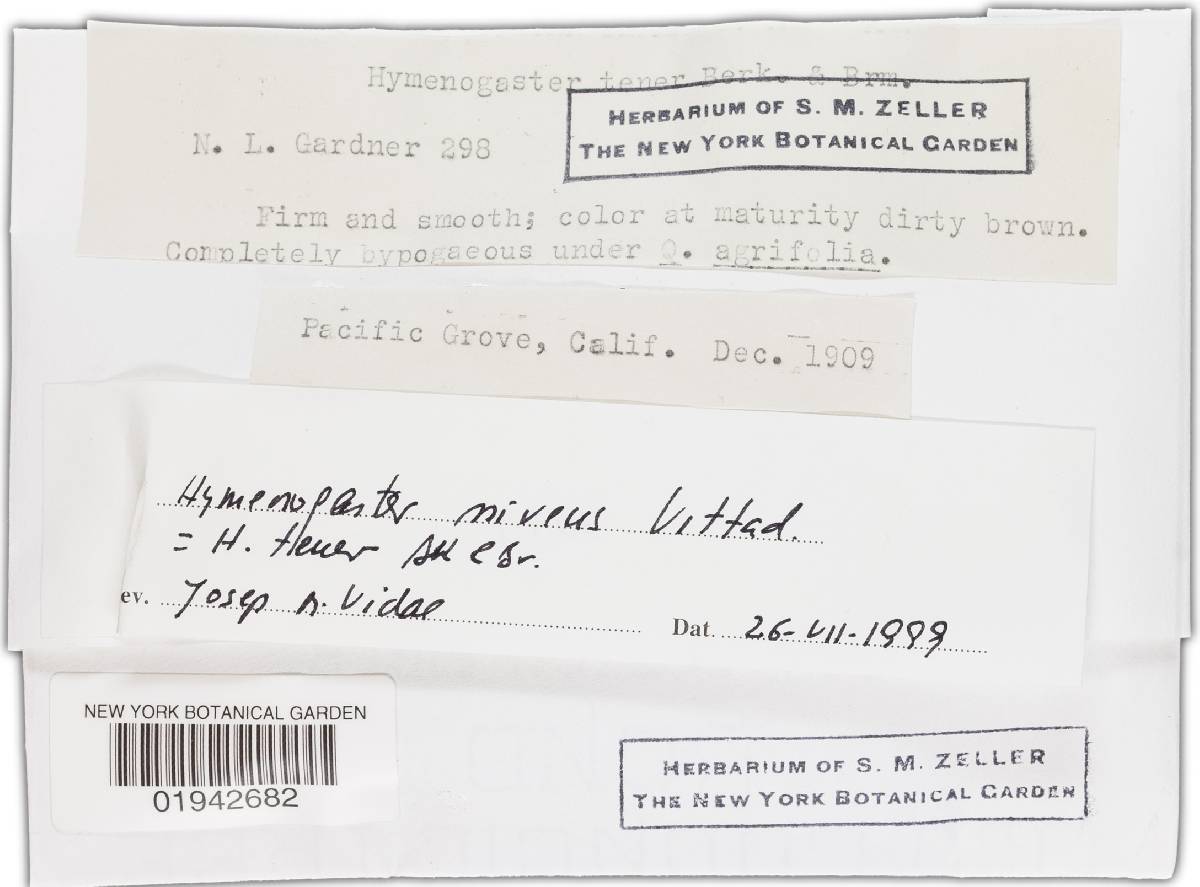 Hymenogaster tener Berk. & Brm.
HERBARIUM OF S. M. ZELLER
THE NEW YORK BOTANICAL GARDEN
N. L. Gardner 298
Firm and smooth; color at maturity dirty brown.
Completely hypogaeous under Q. agrifolia.
Pacific Grove, Calif. Dec. 1909
Hymenogaster niveus Vittad.
= H. tener Bk e Br.
ev. Josep M. Vidal Dat. 26-VII-1999
NEW YORK BOTANICAL GARDEN
01942682
HERBARIUM OF S. M. ZELLER
THE NEW YORK BOTANICAL GARDEN